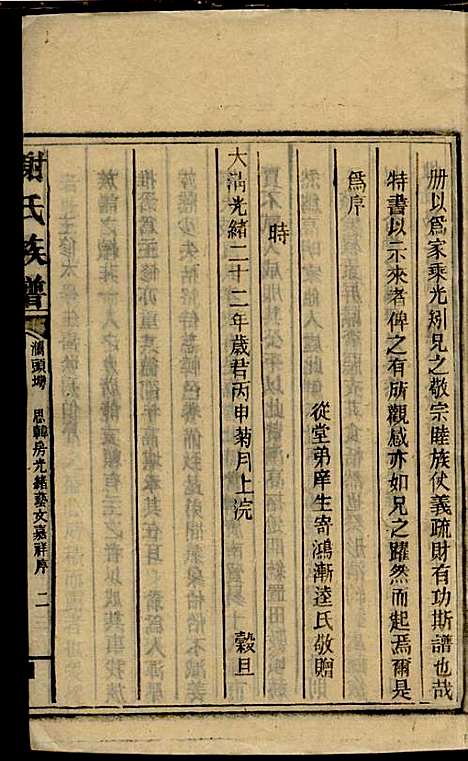 冊以爲家乘光矧兄之敬宗睦族仗義疏財有功斯譜也哉
特書以示來者俾之有所觀感亦如兄之躍然而起焉爾是
爲序
從堂弟庠生寄鴻漸逵氏敬贈
時
大淸光緒二十二年歲君丙申菊月上浣
穀旦
謝氏族譜
頭塲
思韓房光緒藝文嘉祥序
二